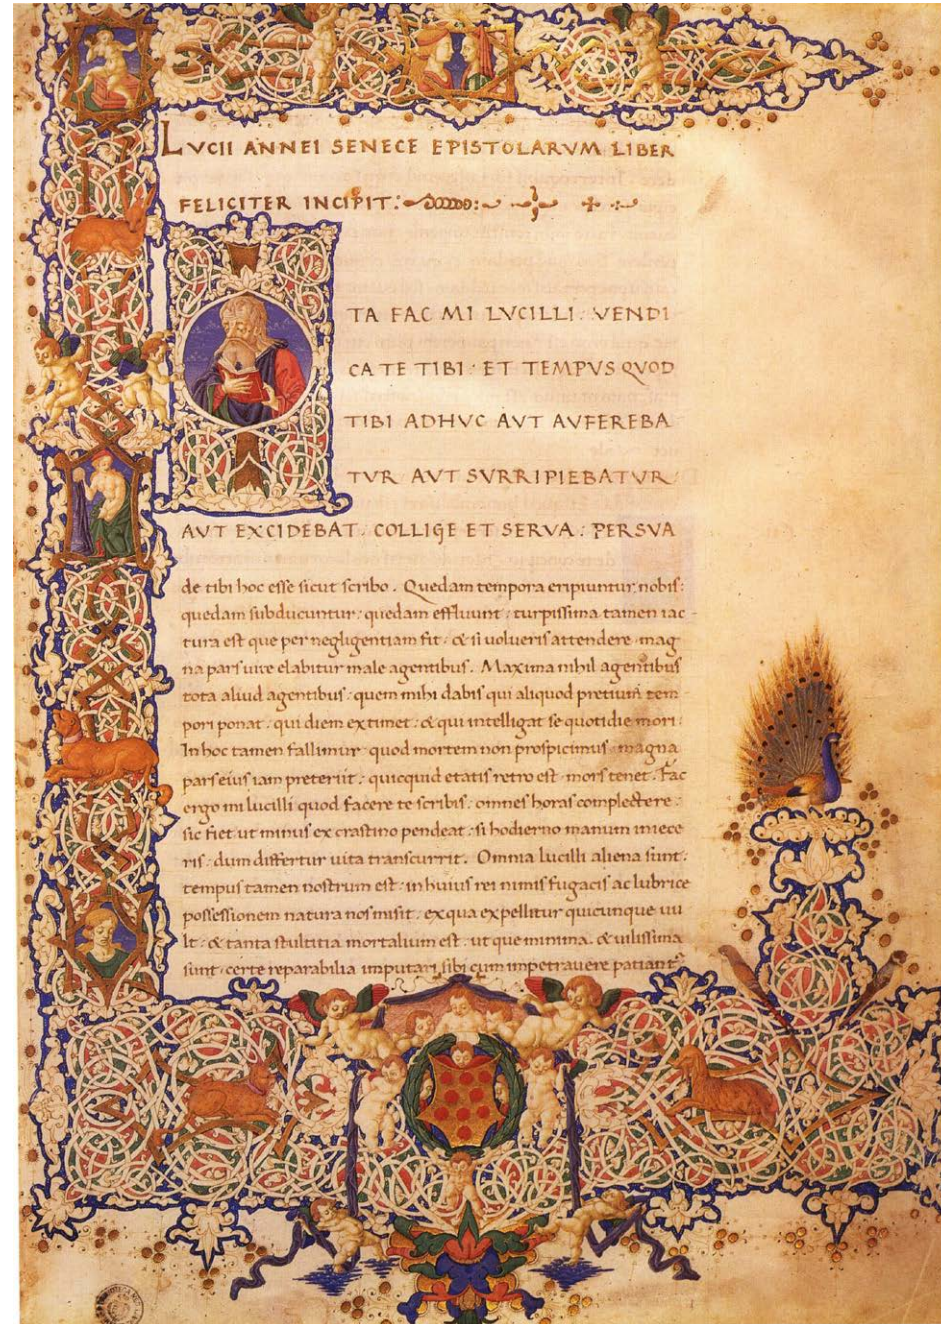 LVCII ANNEI SENECE EPISTOLARVM LIBER
FELICITER INCIPIT:
ITA FAC MI LVCILLI: VENDI
CA TE TIBI: ET TEMPVS QVOD
TIBI ADHVC AVT AVFEREBA
TVR AVT SVRRIPIEBATVR:
AVT EXCIDEBAT. COLLIGE ET SERVA: PERSVA
de tibi hoc esse sicut scribo. Quedam tempora eripiuntur nobis:
quedam subducuntur: quedam effluunt: turpissima tamen iac
tura est que per negligentiam fit: & si uolueris attendere: mag
na pars uite elabitur male agentibus. Maxima nihil agentibus
tota aliud agentibus: quem mihi dabis qui aliquod pretium tem
pori ponat: qui diem extimet: & qui intelligat se quotidie mori:
In hoc tamen fallimur: quod mortem non prospicimus: magna
pars eius iam preteriit: quicquid etatis retro est: mors tenet. Fac
ergo mi lucilli quod facere te scribis: omnes horas complectere:
sic fiet ut minus ex crastino pendeat: si hodierno manum iniece
ris: dum differtur uita transcurrit. Omnia lucilli aliena sunt:
tempus tamen nostrum est: in huius rei nimis fugacis ac lubrice
possessionem natura nos misit: ex qua expellitur quicunque uu
lt: & tanta stultitia mortalium est: ut que minima & uilissima
sunt: certe reparabilia imputari sibi cum impetrauere patiant᷑